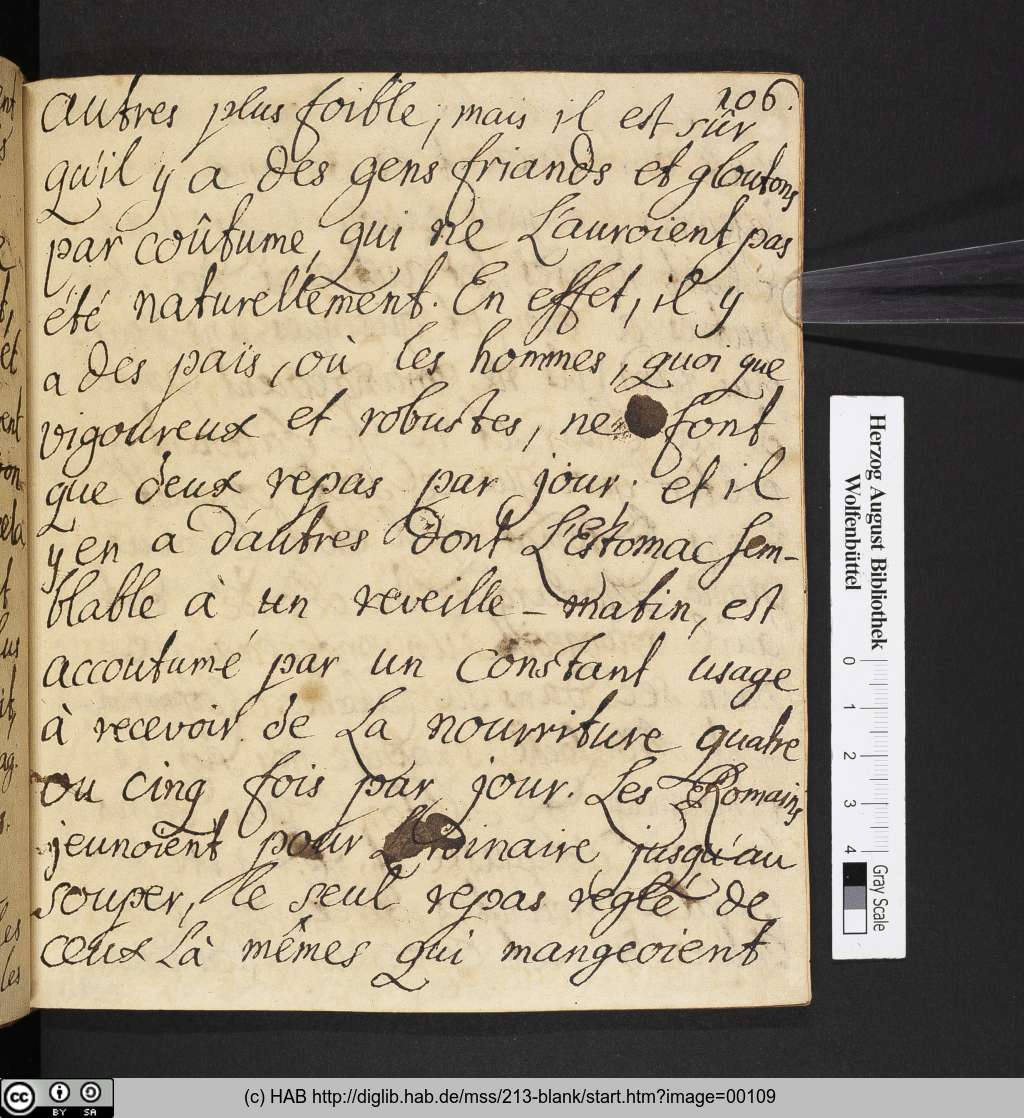 106.
autres plus foible, mais il est sûr
qu'il y a des gens friands et gloutons
par coûtume, qui ne L'auroient pas
été naturellement. En effet, il y
a des païs, où les hommes, quoi que
vigoureux et robustes, ne font
que deux repas par jour; et il
y en a d'autres dont L'Estomac sem-
blable à un reveille-matin, est
accoutumé par un constant usage
à recevoir de La nourriture quatre
ou cinq fois par jour. Les Romains
jeunoient pour L'ordinaire jusqu'au
souper, le seul repas reglé de
ceux Là mêmes qui mangeoient
Herzog August Bibliothek
Wolfenbüttel
0 1 2 3 4
Gray Scale
cc BY SA
(c) HAB http://diglib.hab.de/mss/213-blank/start.htm?image=00109